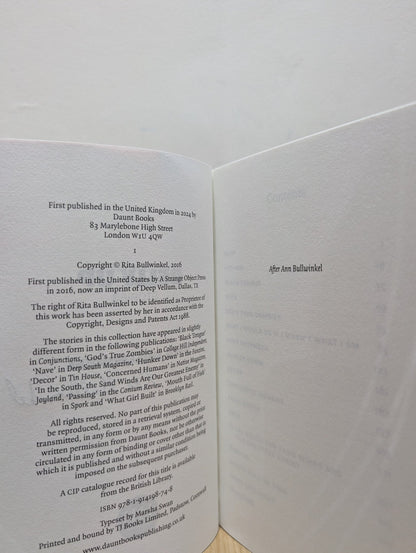 First published in the United Kingdom in 2024 by
Daunt Books
83 Marylebone High Street
London W1U 4QW
1
Copyright © Rita Bullwinkel, 2016
First published in the United States by A Strange Object Press
in 2016, now an imprint of Deep Vellum, Dallas, TX
The right of Rita Bullwinkel to be identified as Proprietor of
this work has been asserted by her in accordance with the
Copyright, Designs and Patents Act 1988.
The stories in this collection have appeared in slightly
different form in the following publications: 'Black Tongue'
in Conjunctions, 'God's True Zombies' in Collage Hill Independent,
'Nave' in Deep South Magazine, 'Hunker Down' in the
'Decor' in Tin House, 'Concerned Humans' in Native Magazine,
'In the South, the Sand Winds Are Our Greatest Enemy' in
Joyland, 'Passing' in the Conium Review, 'Mouth Full of Fish'
in Spork and 'What Girl Built' in Brooklyn Rail.
All rights reserved. No part of this publication may
be reproduced, stored in a retrieval system, copied or
transmitted, in any form or by any means without the prior
written permission from Daunt Books, nor be otherwise
circulated in any form of binding or cover other than that in
which it is published and without a similar condition being
imposed on the subsequent purchaser.
A CIP catalogue record for this title is available
from the British Library.
ISBN 978-1-914198-74-8
Typeset by Marsha Swan
Printed and bound by TJ Books Limited, Padstow, Cornwall
www.dauntbookspublishing.co.uk
After Ann Bullwinkel